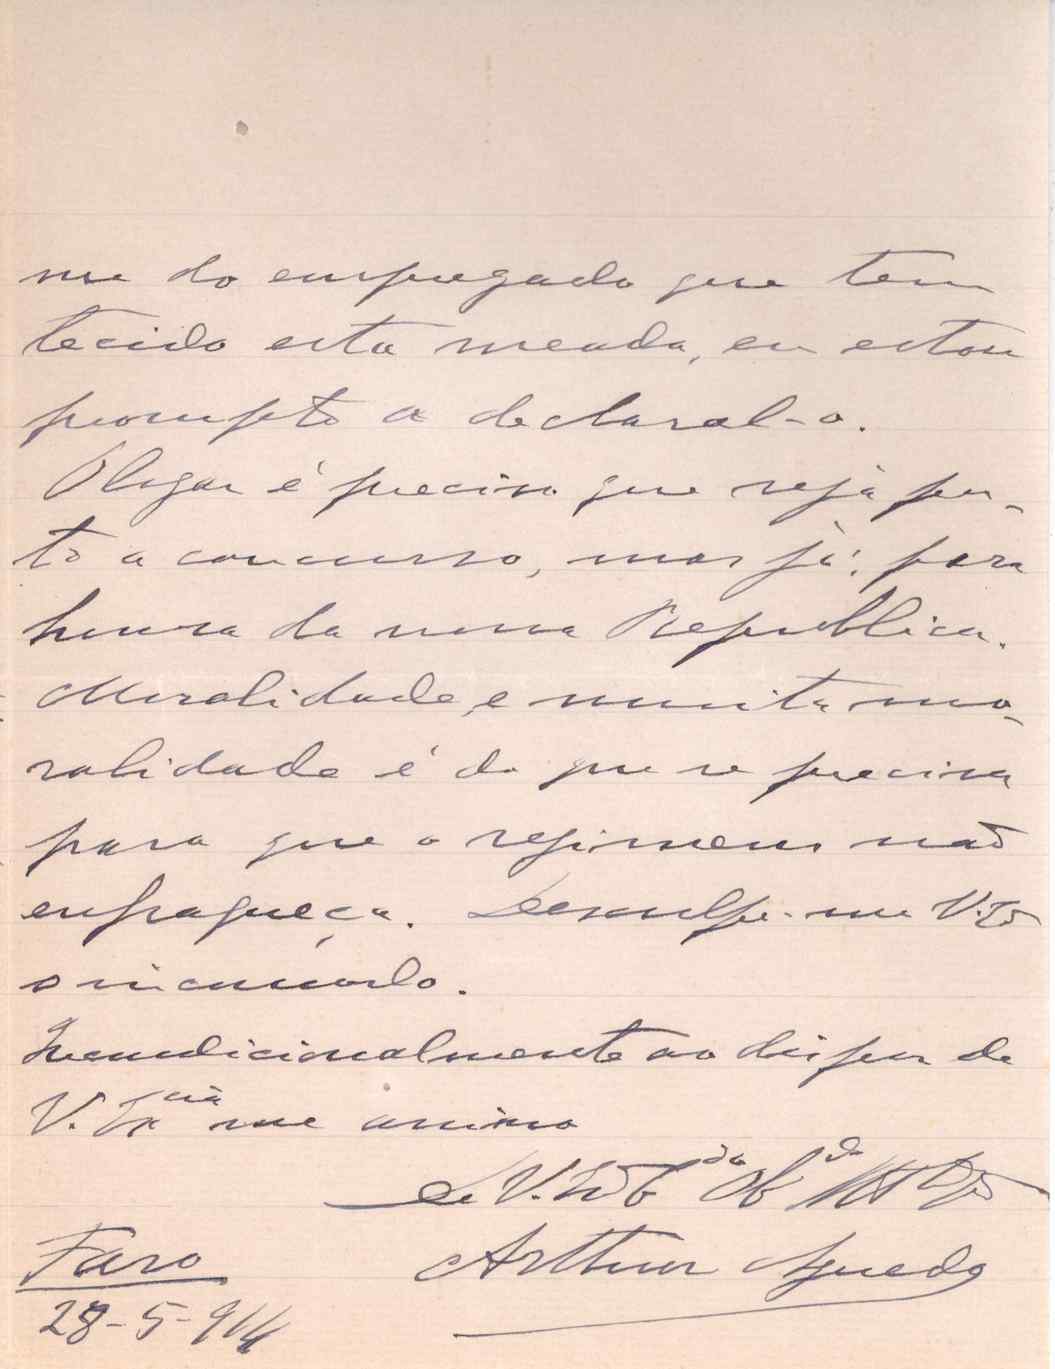 me do empregado que tem
tecido esta meada, eu estou
prompto a declaral-o.
O logar é preciso que seja pos-
to a concurso, mas já: para
honra da nossa Republica.
Moralidade, e muita mo-
ralidade é do que se precisa
para que o regimen não
enfraqueça. Desculpe-me V. Ex
o incommodo.
Incondicionalmente ao dispor de
V. Excia me assino
De V. Ex
Arthur Aguedo
Faro
28-5-914